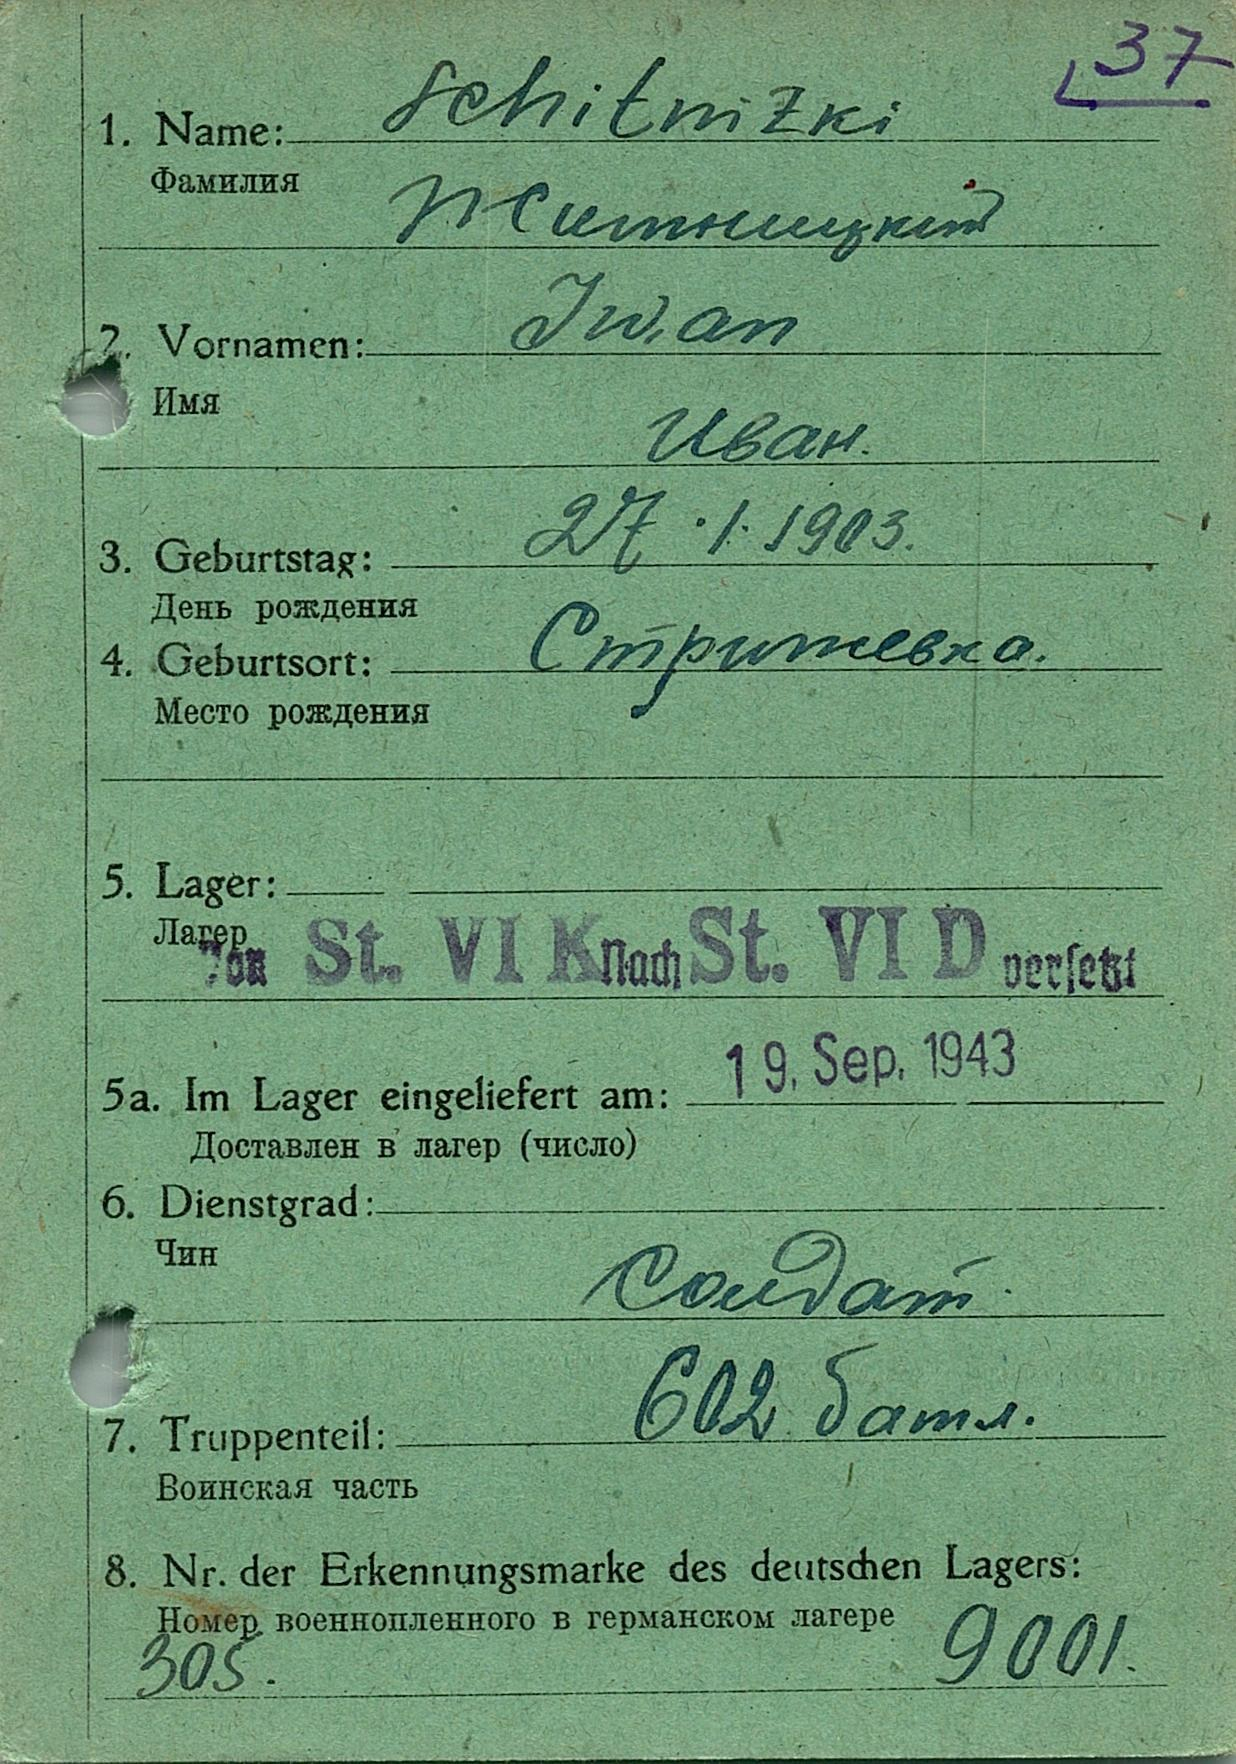 37
1. Name: Schitnizki
Фамилия
Житницкий
2. Vornamen: Iwan
Имя
Иван.
3. Geburtstag: 27.1.1903.
День рождения
4. Geburtsort: Стрижевка.
Место рождения
5. Lager:
Лагер
Von St. VI K Nach St. VI D versetzt
5a. Im Lager eingeliefert am: 19. Sep. 1943
Доставлен в лагер (число)
6. Dienstgrad:
Чин
Солдат.
7. Truppenteil: 602 батл.
Воинская часть
8. Nr. der Erkennungsmarke des deutschen Lagers:
Номер военнопленного в германском лагере
305. 9001.